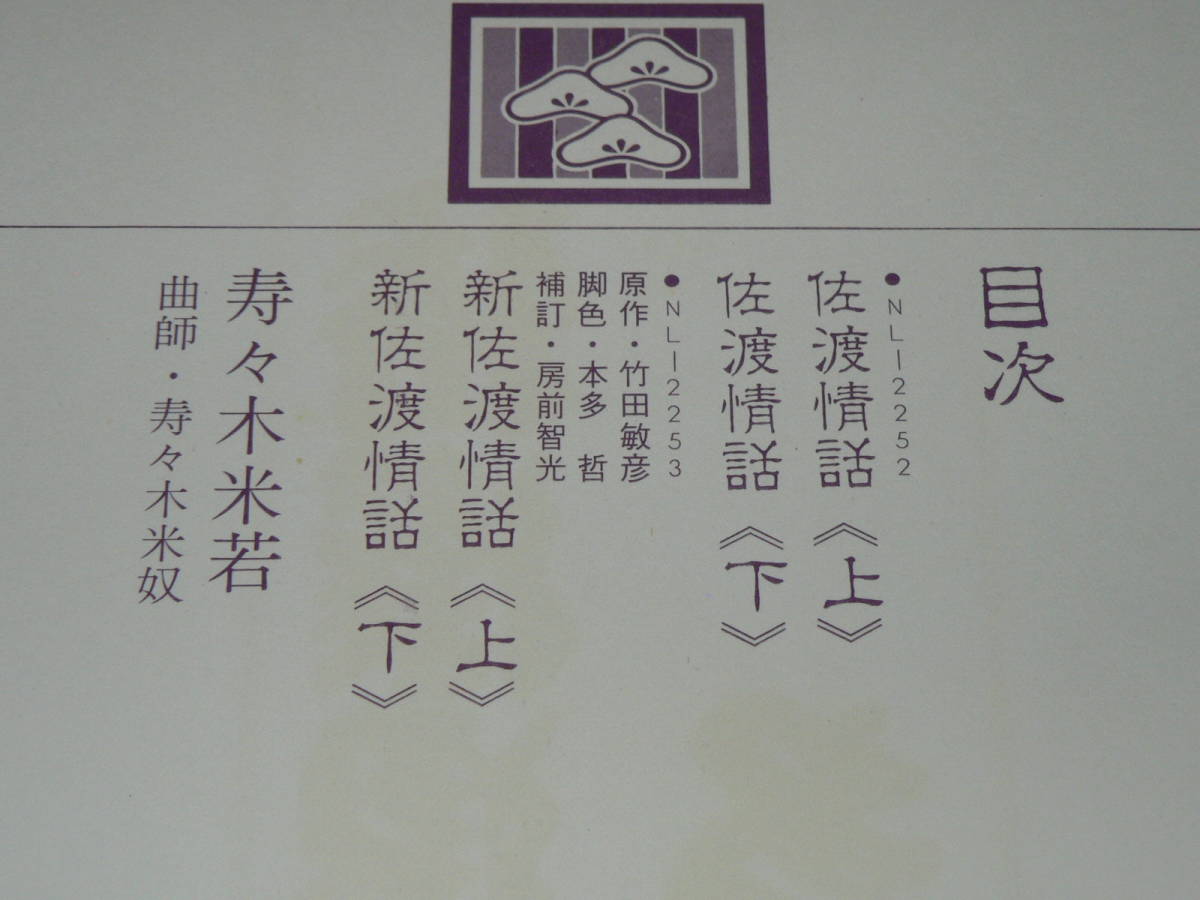 目次
●NL—2252
佐渡情話《上》
佐渡情話《下》
●NL—2253
原作・竹田敏彦
脚色・本多　哲
補訂・房前智光
新佐渡情話《上》
新佐渡情話《下》
寿々木米若
曲師・寿々木米奴